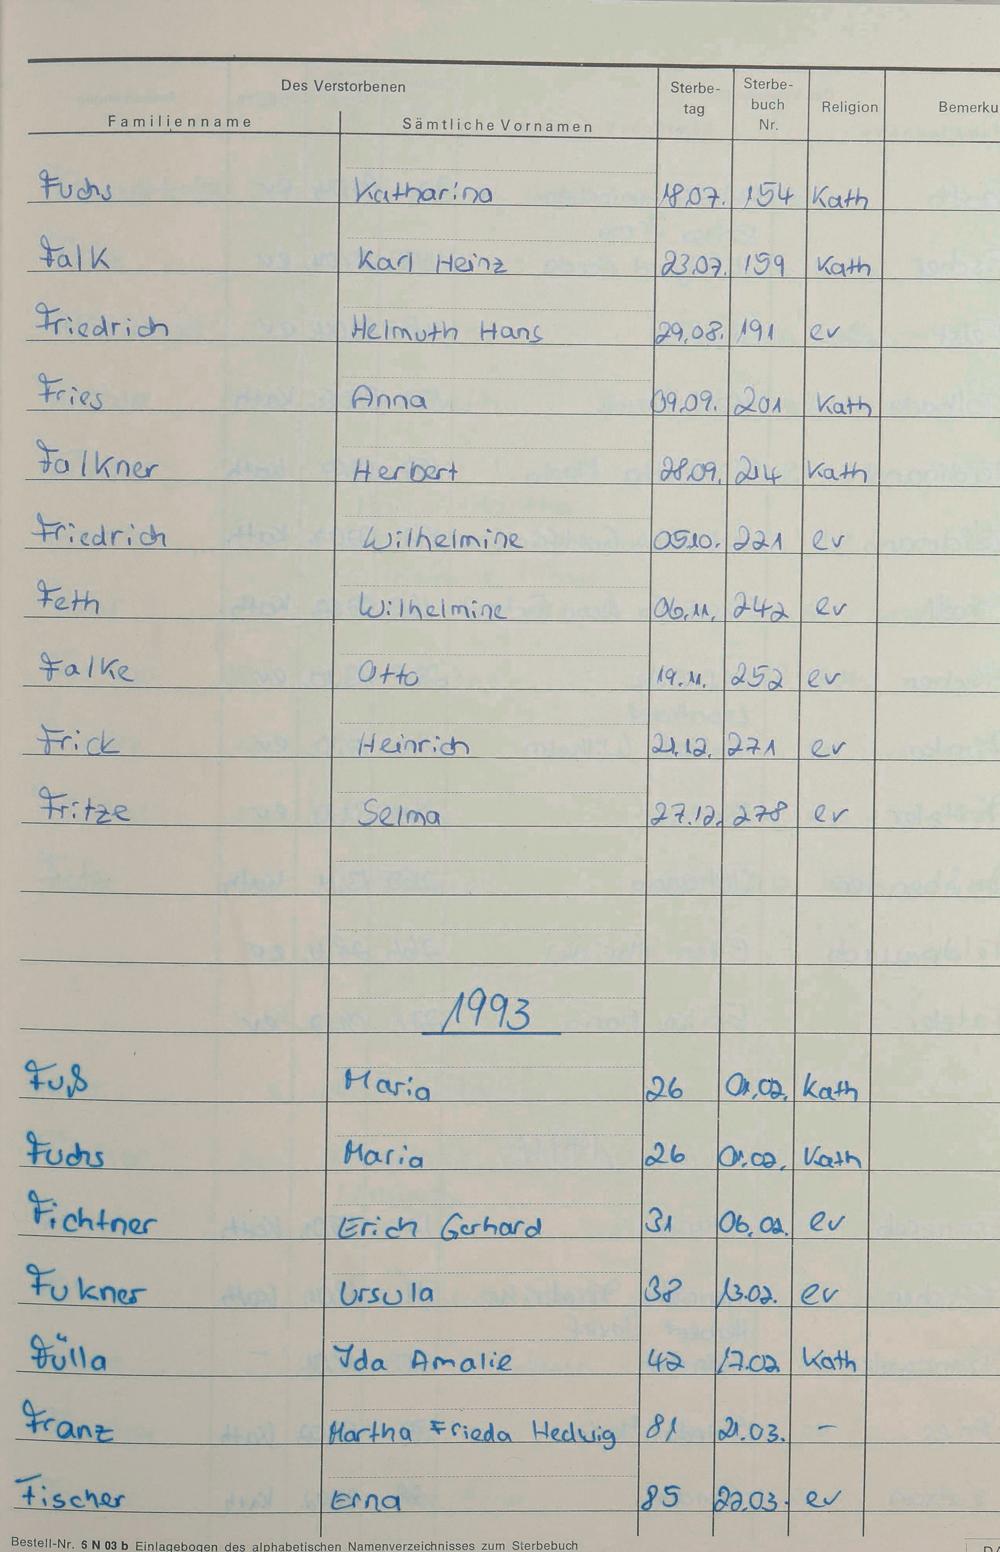 Des Verstorbenen
Familienname Sämtliche Vornamen Sterbe-tag Sterbe-buch Nr. Religion Bemerku
Fuchs Katharina 18.07. 154 Kath
Falk Karl Heinz 23.07. 159 Kath
Friedrich Helmuth Hans 29.08. 191 ev
Fries Anna 09.09. 201 Kath
Falkner Herbert 28.09. 214 Kath
Friedrich Wilhelmine 05.10. 221 ev
Feth Wilhelmine 06.11. 242 ev
Falke Otto 19.11. 252 ev
Frick Heinrich 21.12. 271 ev
Fritze Selma 27.12. 278 ev
1993
Fuß Maria 26 01.02. Kath
Fuchs Maria 26 01.02. Kath
Fichtner Erich Gerhard 31 06.02. ev
Fukner Ursula 38 13.02. ev
Fülla Ida Amalie 42 17.02 Kath
Franz Martha Frieda Hedwig 81 21.03. -
Fischer Erna 85 22.03. ev
Bestell-Nr. 6 N 03 b Einlagebogen des alphabetischen Namenverzeichnisses zum Sterbebuch